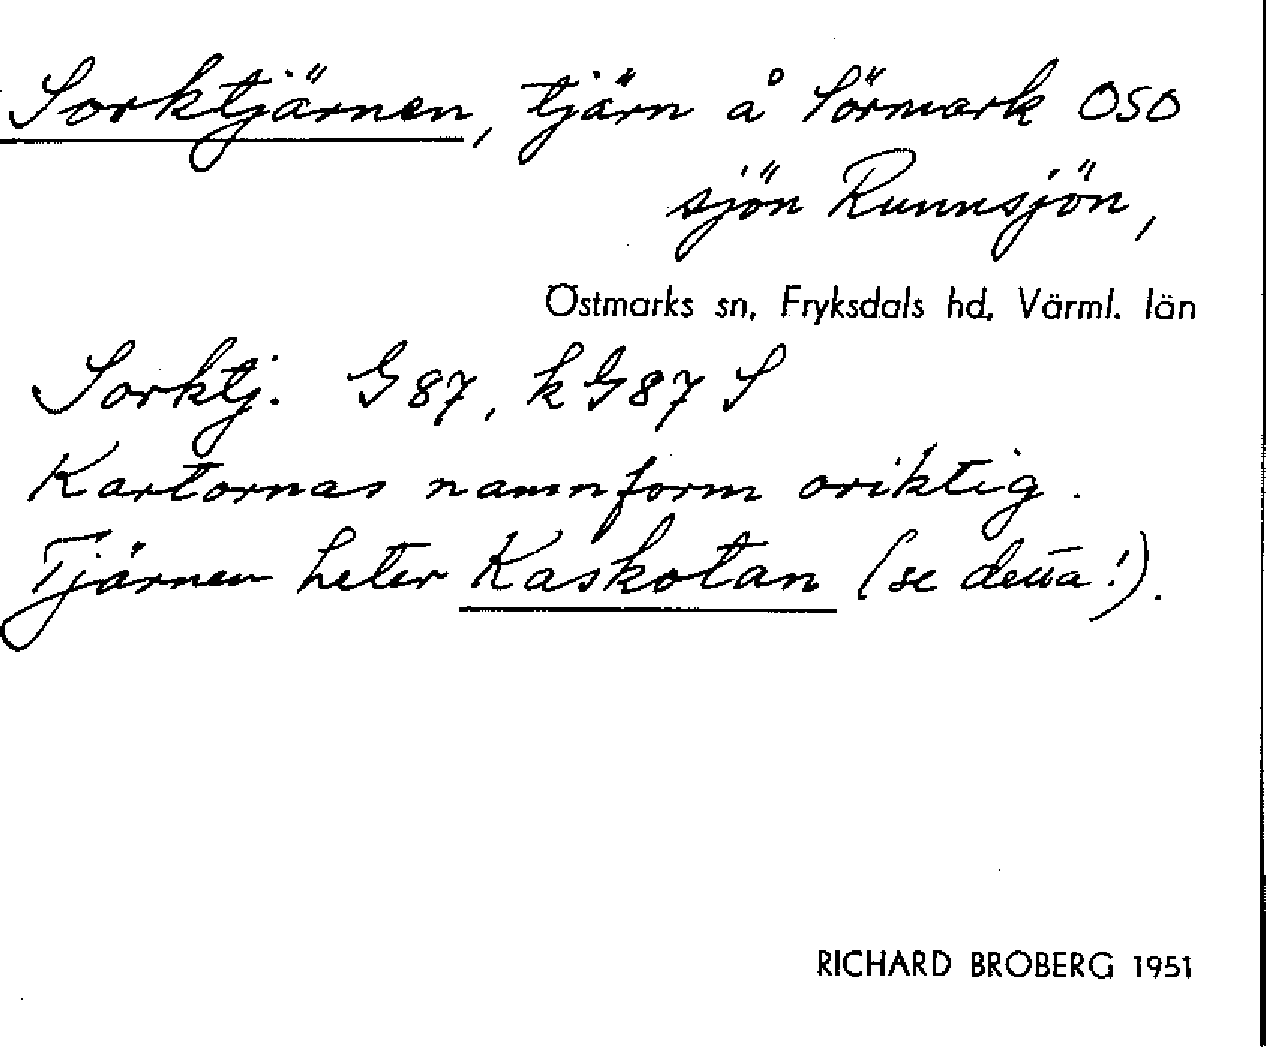 Sorktjärnen, tjärn å Sörmark OSO
sjön Runnsjön,
Östmarks sn, Fryksdals hd, Värml. län
Sorktj. G 87, k G 87 S
Kartornas namnform oriktig.
Tjärnen heter Kaskotan (se detta!).
RICHARD BROBERG 1951